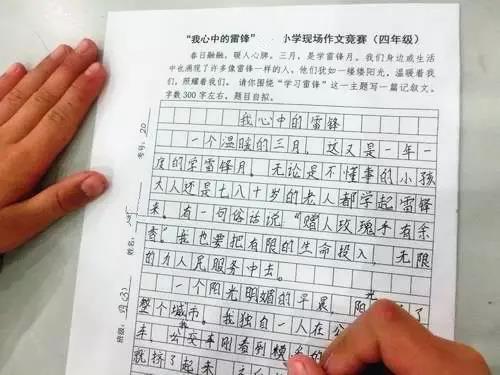 “我心中的雷锋” 小学现场作文竞赛（四年级）
春日融融，暖人心脾。三月，是学雷锋月。我们身边或生活
中也涌现了许多像雷锋一样的人，他们犹如一缕缕阳光，温暖着我
们，照耀着我们。请你围绕“学习雷锋”这一主题写一篇记叙文。
字数300字左右，题目自拟。
我心中的雷锋
一个温暖的三月，这又是一年一
度的学雷锋月。无论是不懂事的小孩
大人还是七八十岁的老人都学起雷锋
来。有一句俗话说“赠人玫瑰手有余
香”我也要把有限的生命投入，无限
的为人民服务中去。
一个阳光明媚的早晨，阳光了
整个城市。我独自一人在公
车，公交车刚看到模
就挤了起来
考号：20
姓名：
班级：四(3)